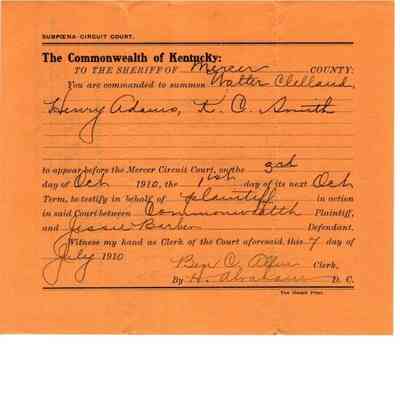 SUBPŒNA-CIRCUIT COURT.
The Commonwealth of Kentucky:
TO THE SHERIFF OF Mercer COUNTY:
You are commanded to summon Walter Clelland,
Henry Adams, K. C. Smith
to appear before the Mercer Circuit Court, on the 3rd
day of Oct 1910, the 1st day of its next Oct
Term, to testify in behalf of plaintiff in action
in said Court between Commonwealth Plaintiff,
and Jessie Barker Defendant.
Witness my hand as Clerk of the Court aforesaid, this 7 day of
July 1910
Ben C. Allin Clerk,
By H. Abraham D. C.